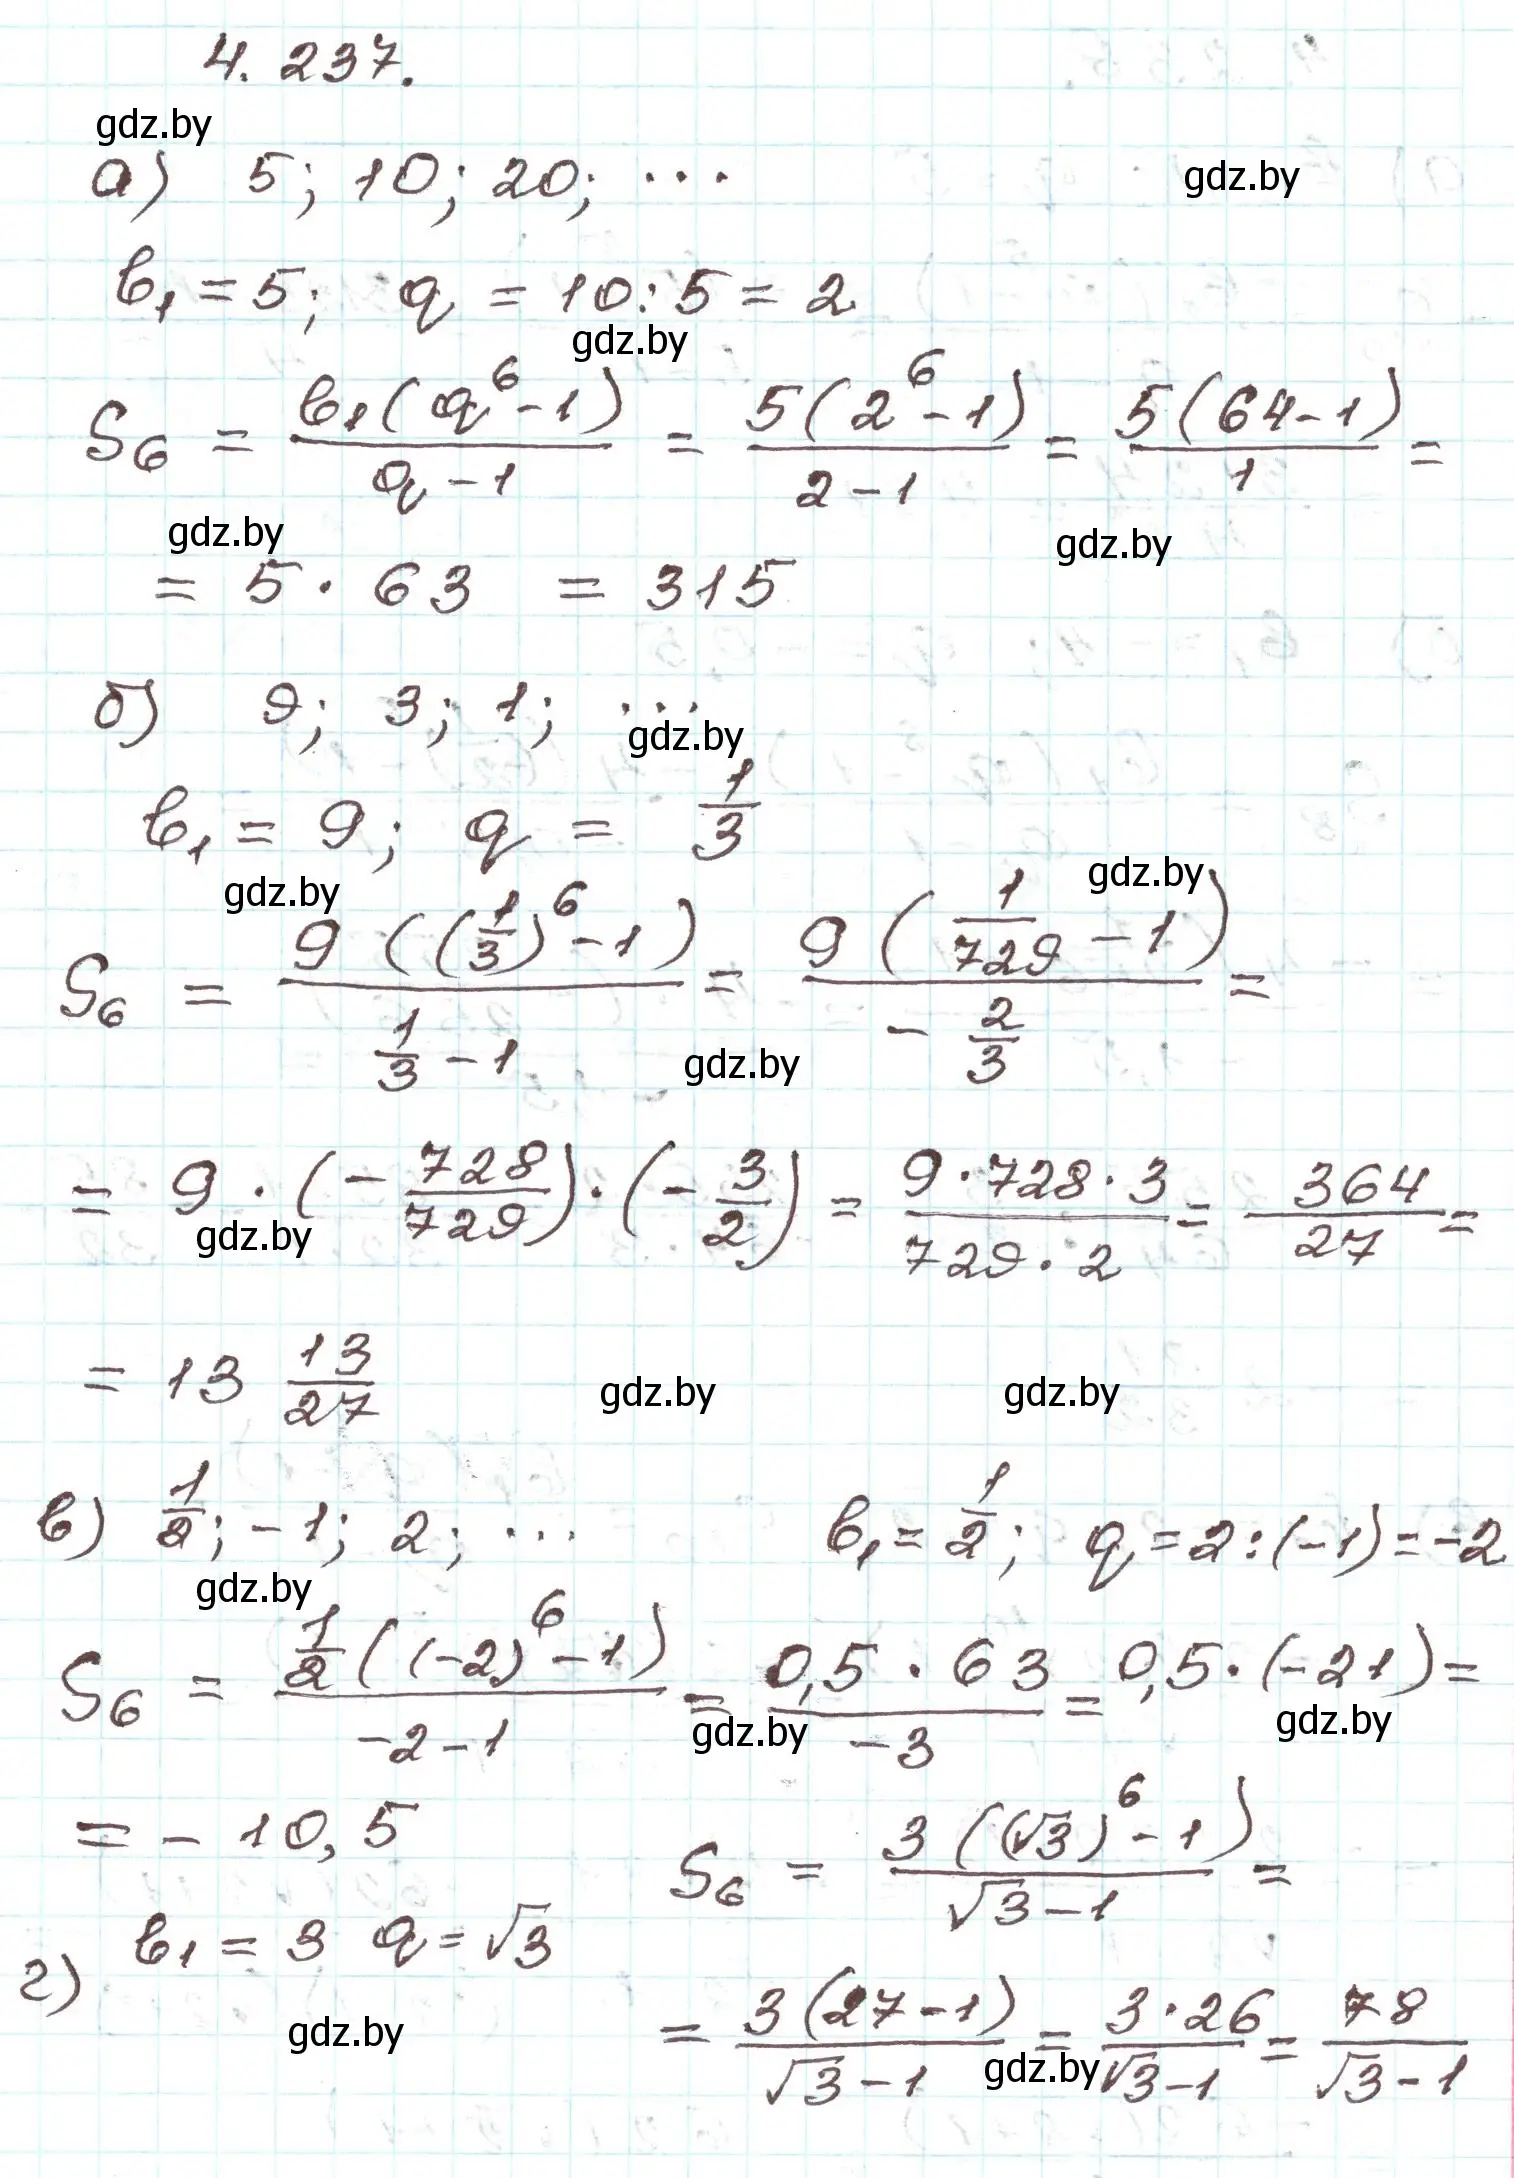 4.237.
gdz.by
а) 5; 10; 20; ...
gdz.by
b₁ = 5; q = 10:5 = 2
gdz.by
S₆ = b₁(q⁶-1)/(q-1) = 5(2⁶-1)/(2-1) = 5(64-1)/1 =
gdz.by gdz.by
= 5 · 63 = 315
б) 9; 3; 1; ...
gdz.by
b₁ = 9; q = 1/3
gdz.by gdz.by
S₆ = 9((1/3)⁶-1)/(1/3-1) = 9(1/729-1)/(-2/3) =
gdz.by
= 9 · (-728/729) · (-3/2) = 9·728·3/(729·2) = 364/27 =
gdz.by
= 13 13/27
gdz.by gdz.by
в) 1/2; -1; 2; ... b₁ = 1/2; q = 2:(-1) = -2
gdz.by
S₆ = 1/2((-2)⁶-1)/(-2-1) = 0,5 · 63/(-3) = 0,5·(-21) =
gdz.by gdz.by
= - 10,5
г) b₁ = 3 q = √3 S₆ = 3((√3)⁶-1)/(√3-1) =
gdz.by
= 3(27-1)/(√3-1) = 3·26/(√3-1) = 78/(√3-1)
gdz.by